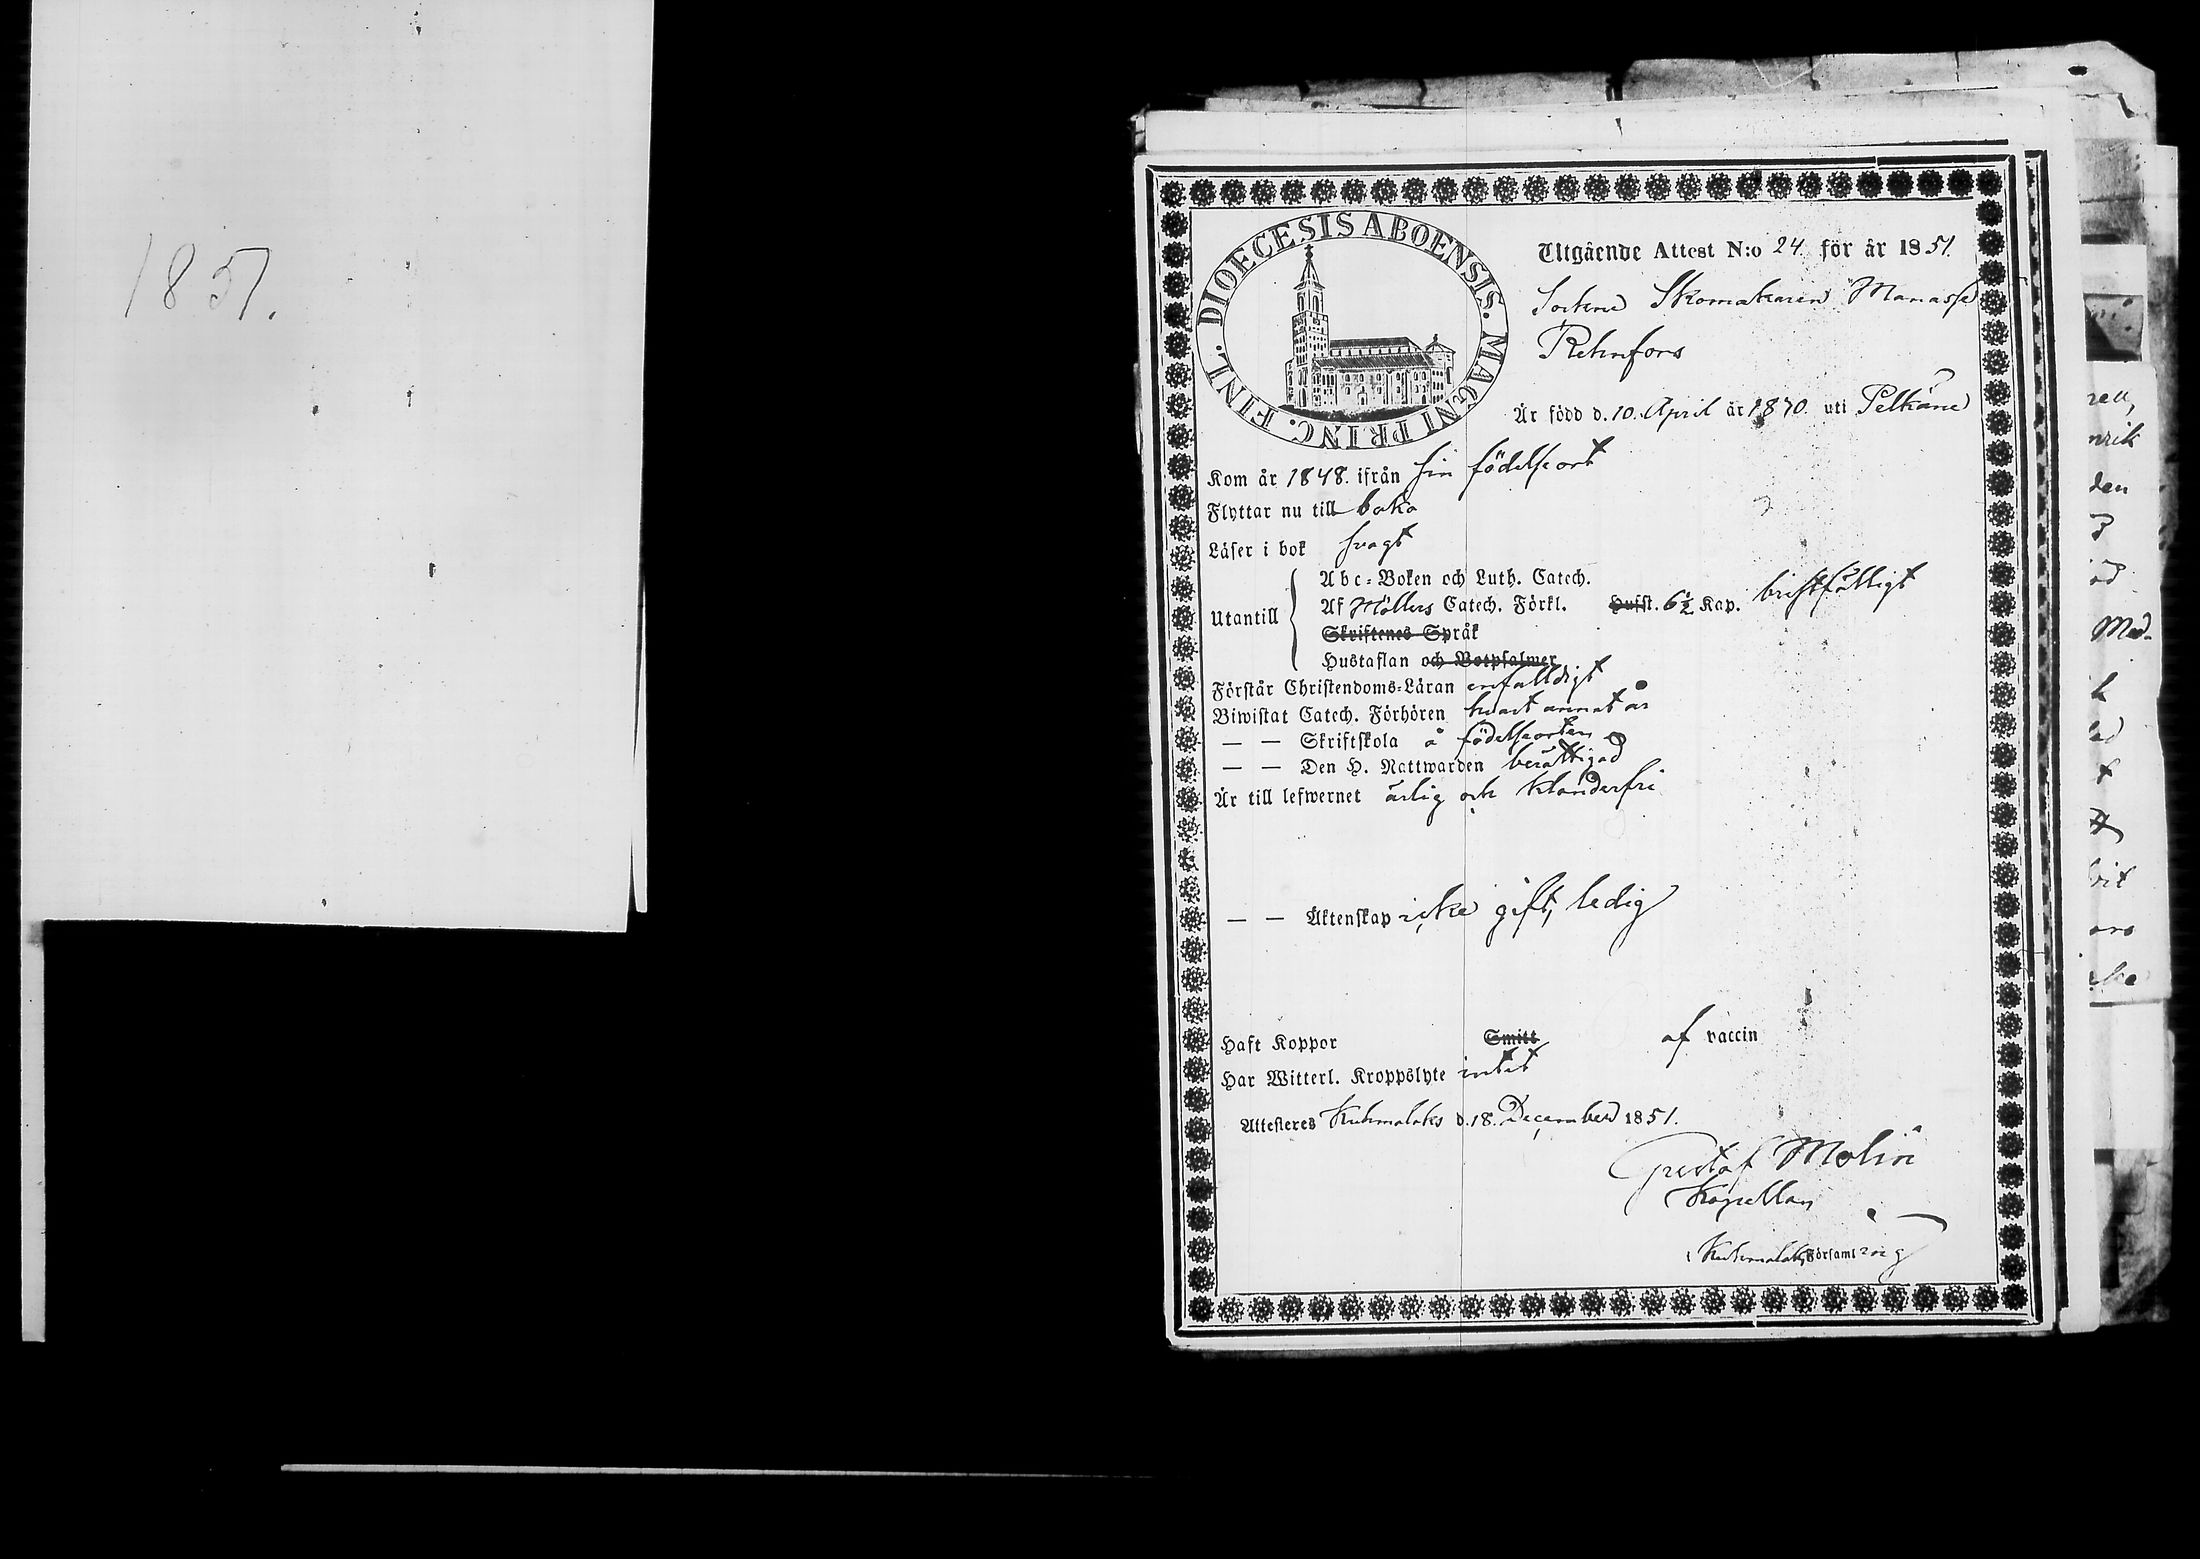 1851.
DIOECESIS ABOENSIS. MAGNI PRINC. FINL.
Utgående Attest N:o 24. för år 1851.
Sockne Skomakaren Manasse
Rehnfors
Är född d. 10. April år 1870. uti Pelkäne
Kom år 1848. ifrån sin födelseort
Flyttar nu till baka
Läser i bok svagt
Abc-Boken och Luth. Catech.
Utantill
Af Möllers Catech. Förkl. Husst. 6½ Kap. bristfälligt
Skriftenes Språk
Hustaflan och Botpsalmer
Förstår Christendoms-Läran enfalldigt
Biwistat Catech. Förhören hvart annat år
— — Skriftskola å födelseorten
— — Den H. Nattwarden berättigad
Är till lefwernet ärlig och klanderfri
— — Äktenskap icke gift, ledig
Haft Koppor Smitt af vaccin
Har Witterl. Kroppslyte intet
Attesteres Kuhmalaks d. 18. December 1851.
Gustaf Molin
Kapellan
i Kuhmalaks Församling
rell,
nrik
den
Med-